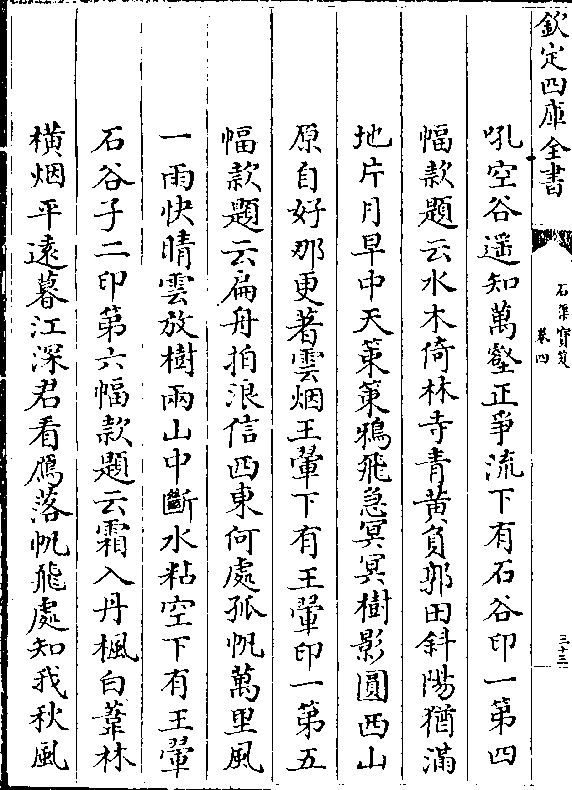 欽定四庫全書
石渠寶笈
卷四
三十三
吼空谷遥知萬壑正爭流下有石谷印一第四
幅款題云水木倚林寺青黄負郭田斜陽猶滿
地片月早中天策策鴉飛急冥冥樹影圓西山
原自好那更著雲烟王翬下有王翬印一第五
幅款題云扁舟拍浪信西東何處孤帆萬里風
一雨快晴雲放樹兩山中斷水粘空下有王翬
石谷子二印第六幅款題云霜入丹楓白葦林
横烟平遠暮江深君看鴈落帆飛處知我秋風